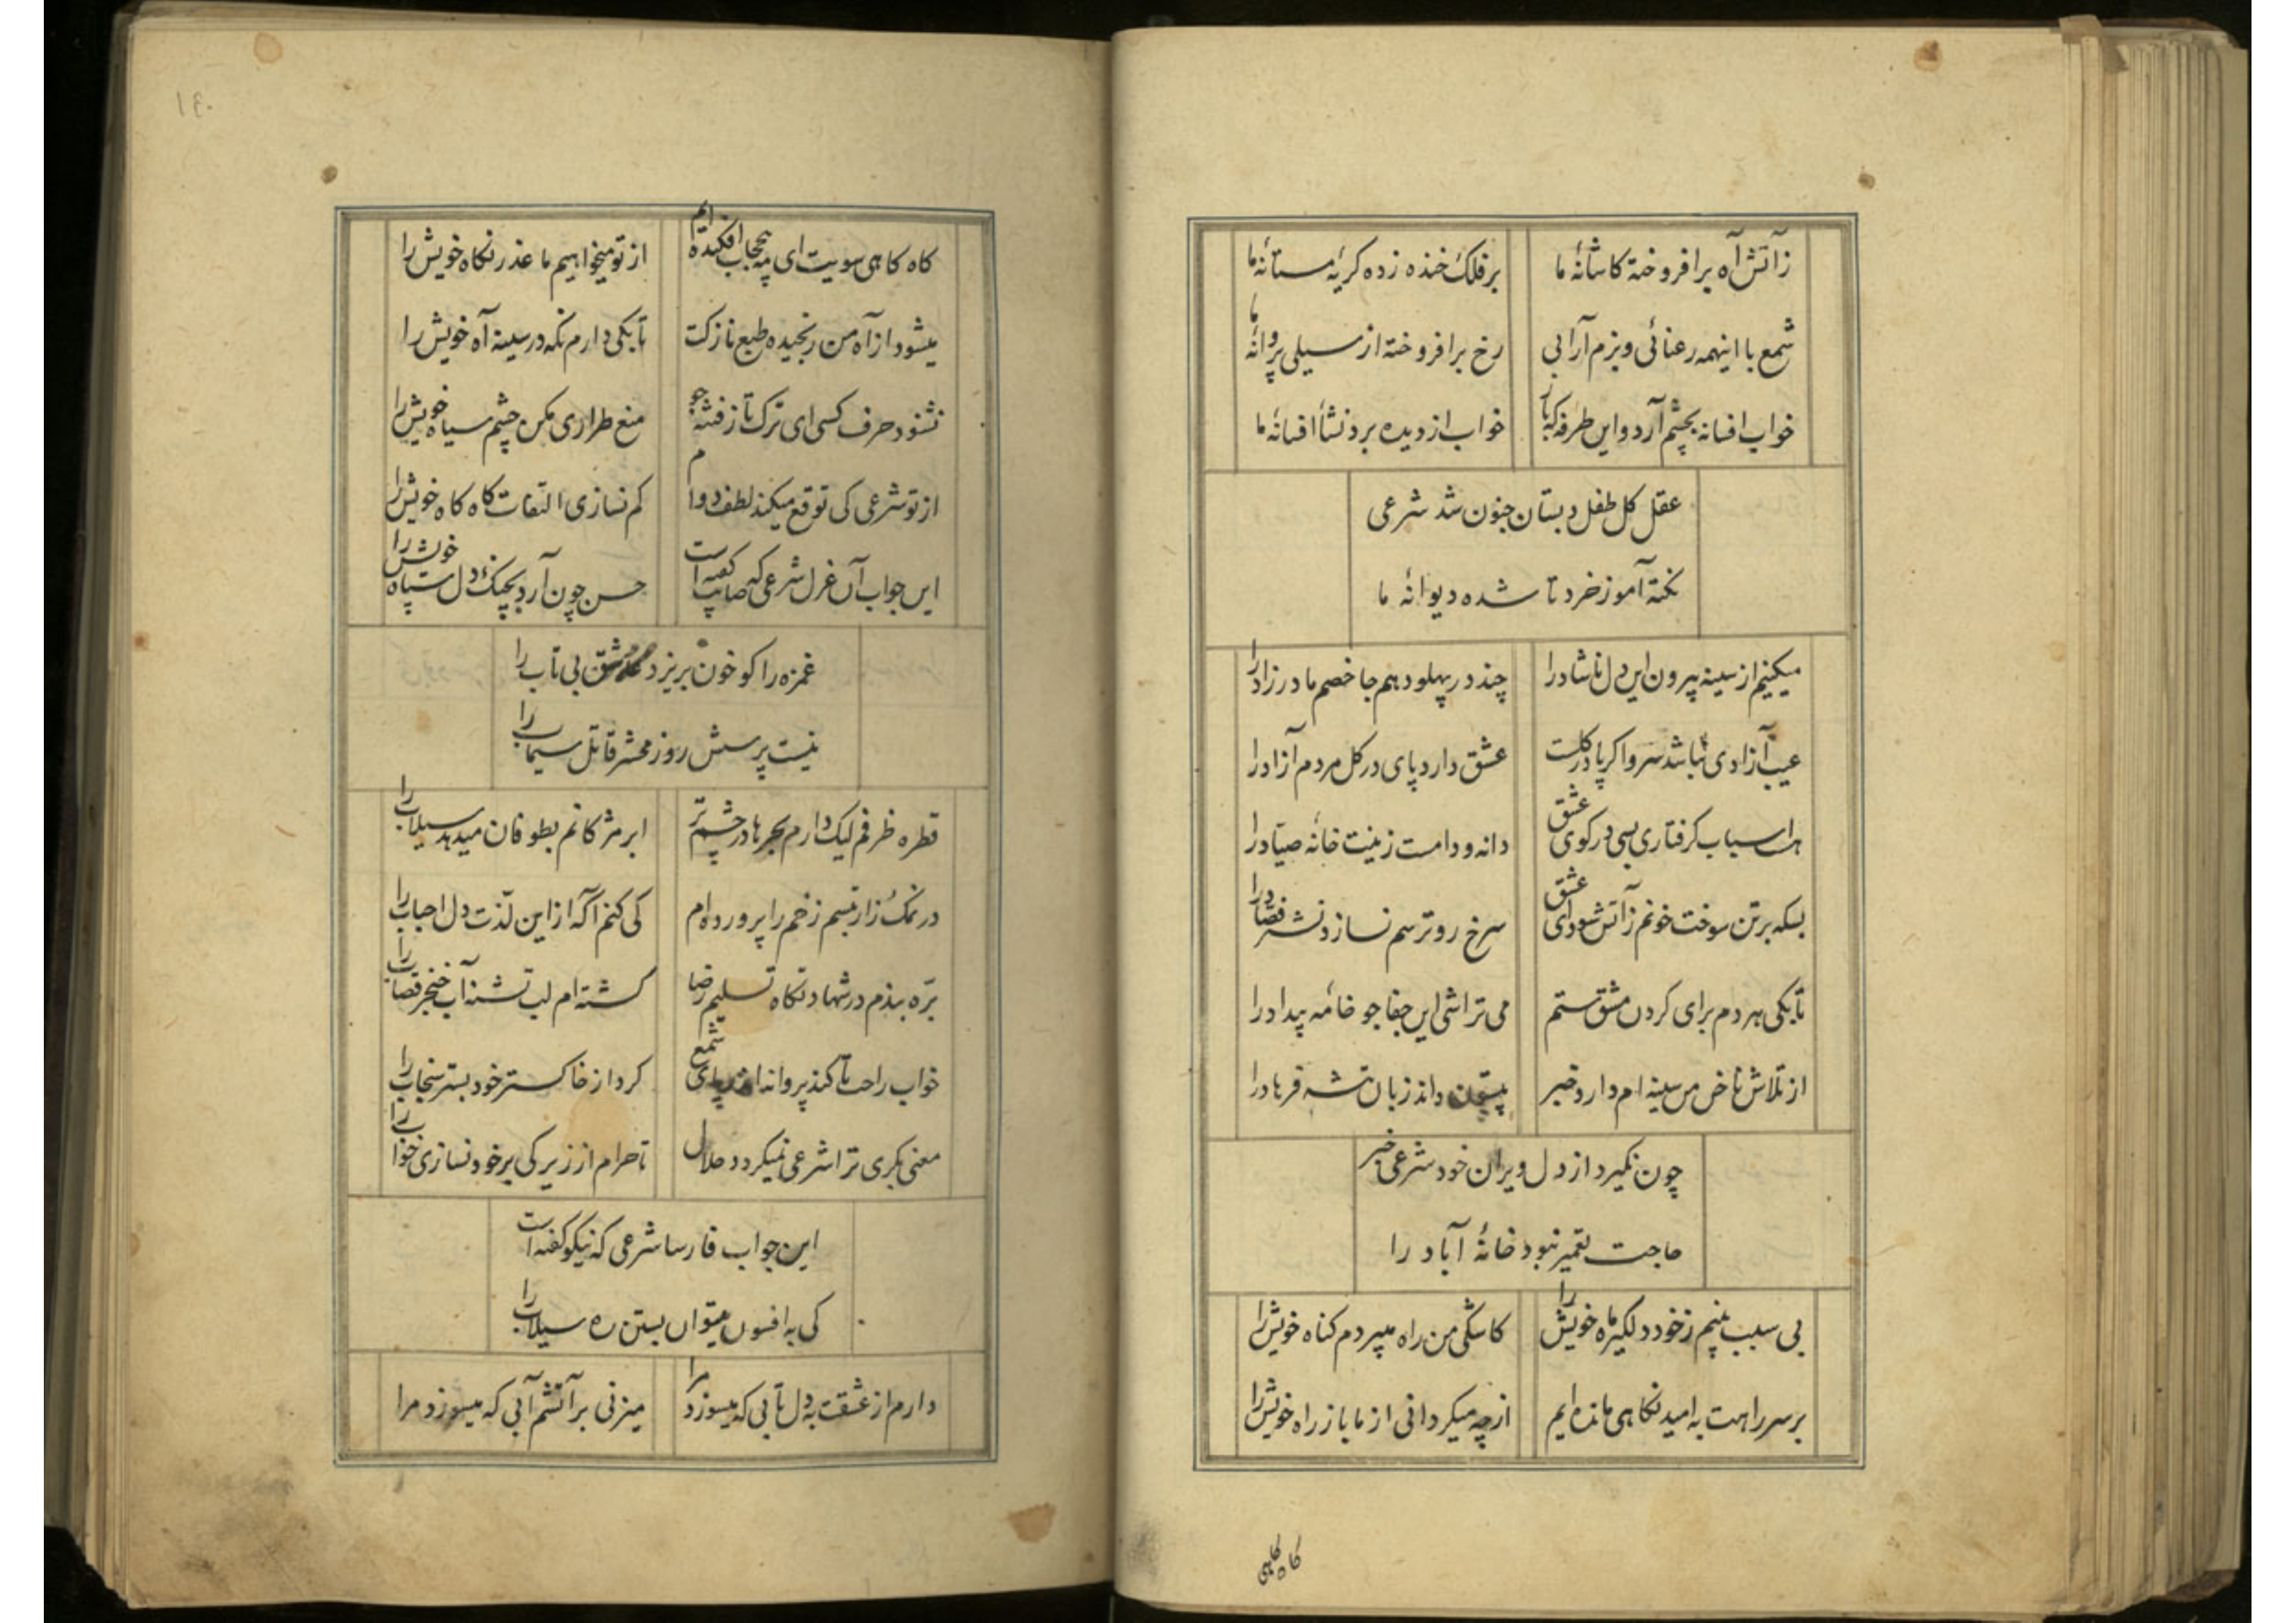 زآتش آه برافروخته کاشانهٔ ما
بر فلک خنده زده کریهٔ مستانهٔ ما
شمع با اینهمه رعنائی و بزم آرایی
رخ برافروخته از سیلی پروانهٔ ما
خواب افسانه بچشم آرد و این طرفه که یار
خواب از دیده برد نشأ افسانهٔ ما
عقل کل طفل دبستان جنون شد شرعی
نکته آموز خرد تا شده دیوانهٔ ما
میکنیم از سینه بیرون این دل ناشاد را
چند در پهلو دهم جا خصم مادرزاد را
عیب آزادی نباشد سرو اکر پا در کلست
عشق دارد پای در کل مردم آزاد را
هست اسباب کرفتاری بسی در کوی عشق
دانه و دامست زینت خانهٔ صیاد را
بسکه بر تن سوخت خونم زآتش سودای عشق
سرخ رو ترسم نسازد نشتر فصاد را
تا بکی هر دم برای کردن مشق ستم
می تراشی این جفاجو خامهٔ بیداد را
از تلاش ناخن من سینه ام دارد خبر
بیستون داند زبان تیشه فرهاد را
چون نمیکیرد از دل ویران خود شرعی خبر
حاجت تعمیر نبود خانهٔ آباد را
بی سبب بینم ز خود دلکیر ماه خویش را
کاشکی من راه میبردم کناه خویش را
بر سر راهت به امید نکاهی مانده ایم
از چه میکردانی از ما باز راه خویش را
کاه کاهی
۱۴۰
کاه کاهی سویت ای مه بیحجاب افکنده ایم
از تو میخواهیم ما عذر نکاه خویش را
میشود از آه من رنجیده طبع نازکت
تا بکی دارم نکه در سینه آه خویش را
نشنود حرف کسی ای ترک تاز فتنه جو
منع طراری مکن چشم سیاه خویش را
از تو شرعی کی توقع میکند لطف دوام
کم نسازی التفات کاه کاه خویش را
این جواب آن غزل شرعی که صایب کفته است
حسن چون آرد بجنک دل سپاه خویش را
غمزه را کو خون بریزد عاشق بی تاب را
نیست پرسش روز محشر قاتل سیماب را
قطره ظرفم لیک دارم بحرها در چشم تر
ابر مژکانم بطوفان میدهد سیلاب را
در نمک زار تبسم زخم را پرورده ام
کی کنم آکه از این لذت دل احباب را
بره بندم در شهادتکاه تسلیم رضا
کشته ام لب تشنه آب خنجر قصاب را
خواب راحت تا کند پروانه اندر پای شمع
کرد از خاکستر خود بستر سنجاب را
معنی بکری ترا شرعی نمیکردد حلال
تا حرام از زیرکی بر خود نسازی خواب را
این جواب فارسا شرعی که نیکو کفته است
کی به افسون میتوان بستن ره سیلاب را
دارم از عشقت به دل تابی که میسوزد مرا
میزنی بر آتشم آبی که میسوزد مرا